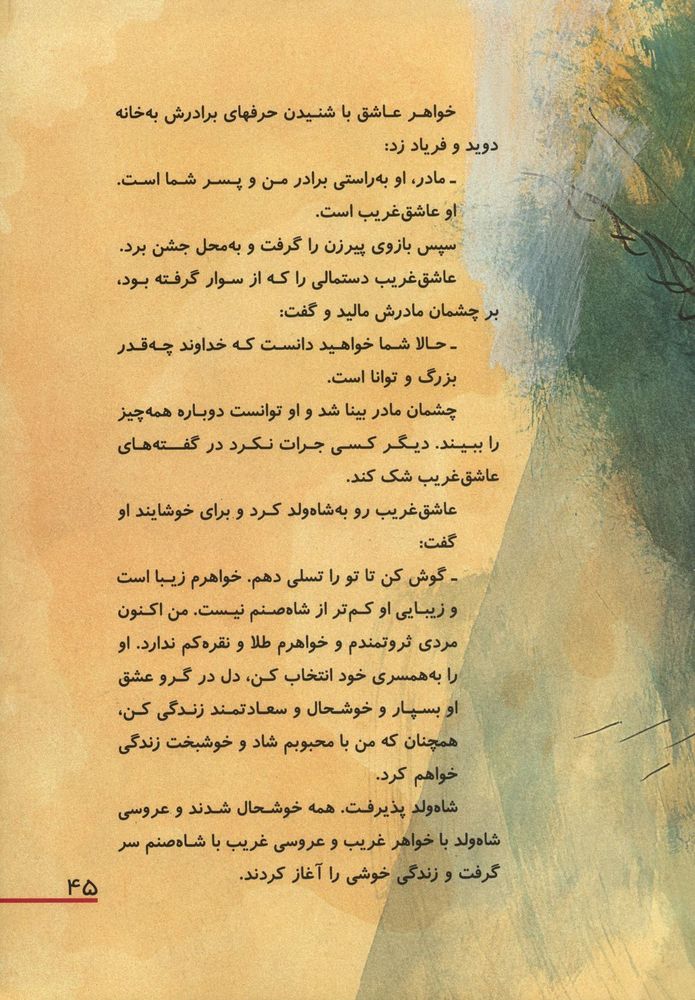 خواهر عاشق با شنیدن حرفهای برادرش به‌خانه
دوید و فریاد زد:
ـ مادر، او به‌راستی برادر من و پسر شما است.
او عاشق‌غریب است.
سپس بازوی پیرزن را گرفت و به‌محل جشن برد.
عاشق‌غریب دستمالی را که از سوار گرفته بود،
بر چشمان مادرش مالید و گفت:
ـ حالا شما خواهید دانست که خداوند چه‌قدر
بزرگ و توانا است.
چشمان مادر بینا شد و او توانست دوباره همه‌چیز
را ببیند. دیگر کسی جرات نکرد در گفته‌های
عاشق‌غریب شک کند.
عاشق‌غریب رو به‌شاه‌ولد کرد و برای خوشایند او
گفت:
ـ گوش کن تا تو را تسلی دهم. خواهرم زیبا است
و زیبایی او کم‌تر از شاه‌صنم نیست. من اکنون
مردی ثروتمندم و خواهرم طلا و نقره‌کم ندارد. او
را به‌همسری خود انتخاب کن، دل در گرو عشق
او بسپار و خوشحال و سعادتمند زندگی کن،
همچنان که من با محبوبم شاد و خوشبخت زندگی
خواهم کرد.
شاه‌ولد پذیرفت. همه خوشحال شدند و عروسی
شاه‌ولد با خواهر غریب و عروسی غریب با شاه‌صنم سر
گرفت و زندگی خوشی را آغاز کردند.
۴۵